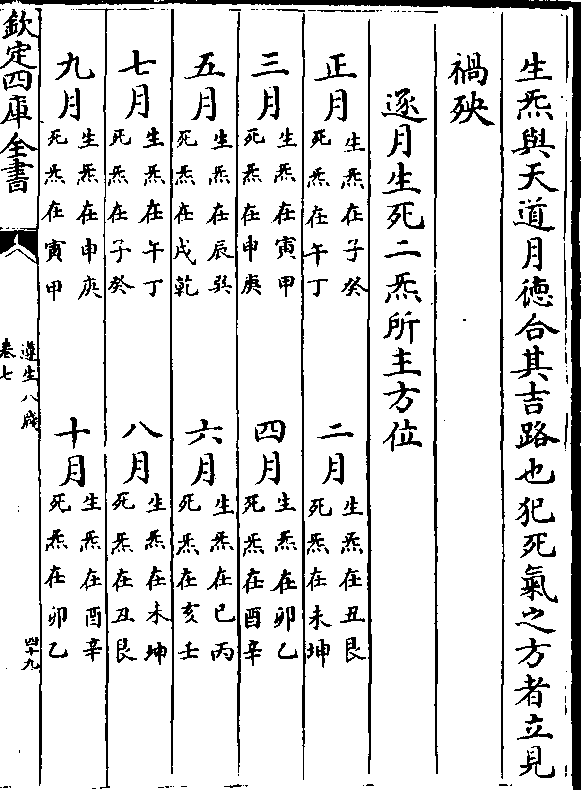 生炁與天道月徳合其吉路也犯死氣之方者立見
禍殃
逐月生死二炁所主方位
正月
生炁在子癸
死炁在午丁
二月
生炁在丑艮
死炁在未坤
三月
生炁在寅甲
死炁在申庚
四月
生炁在卯乙
死炁在酉辛
五月
生炁在辰巽
死炁在戌乾
六月
生炁在巳丙
死炁在亥壬
七月
生炁在午丁
死炁在子癸
八月
生炁在未坤
死炁在丑艮
九月
生炁在申庚
死炁在寅甲
十月
生炁在酉辛
死炁在卯乙
欽定四庫全書
遵生八牋
卷七
四十九